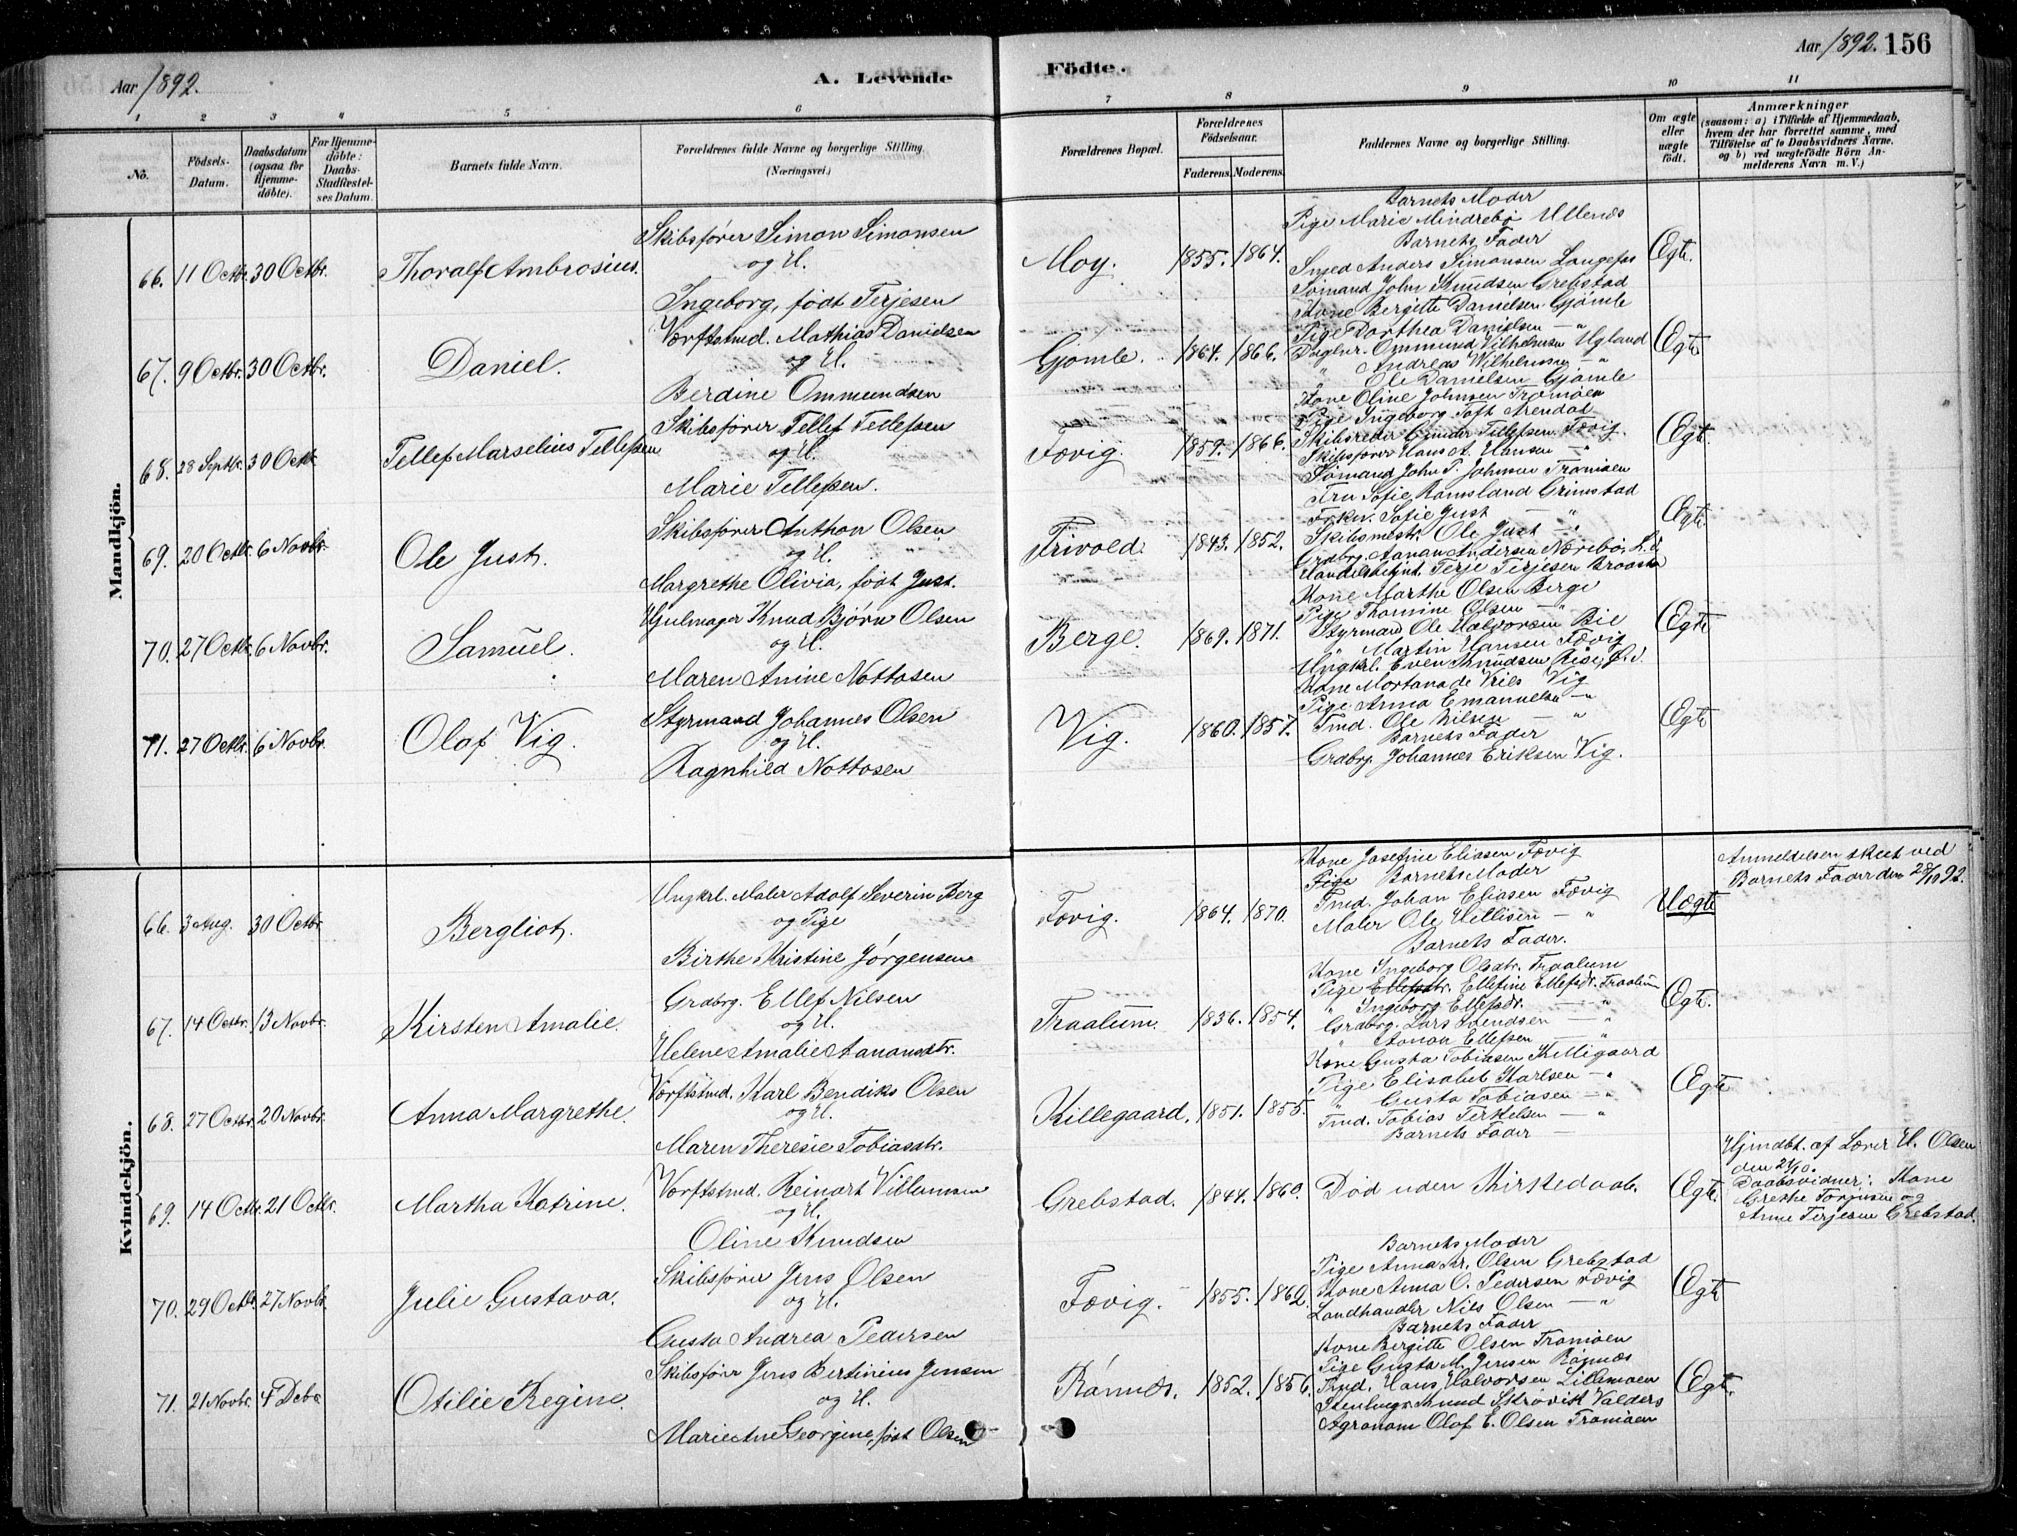 Aar 1892.
A. Levende Födte.
Aar 1892. 156
1 2 3 4 5 6 7 8 9 10 11
No. Födsels-Datum. Daabsdatum (ogsaa for Hjemme-döbte). For Hjemme-döbte: Daabs-Stadfæstel-ses Datum. Barnets fulde Navn. Forældrenes fulde Navne og borgerlige Stilling. (Næringsvei.) Forældrenes Bopæl. Forældrenes Födselsaar. Faderens. Moderens. Faddernes Navne og borgerlige Stilling. Om ægte eller uægte födt. Anmærkninger (saasom: a) i Tilfælde af Hjemmedaab, hvem der har forrettet samme, med Tilföielse af to Daabsvidners Navne, og b) ved uægtefödte Börn An-melderens Navn m. V.)
Mandkjön.
66. 11 Octbr. 30 Octbr. Thoralf Ambrosius.
Skibsfører Simon Simonsen
og H.
Ingeborg, født Terjesen
Moy. 1855. 1864.
Barnets Moder
Pige Marie Mindrebö Ullenæs
Barnets Fader
Smed Anders Simonsen Langefos
Sömand John Knudsen Grebstad
Ægte.
67. 9 Octbr. 30 Octbr. Daniel.
Værftstmd. Mathias Danielsen
og H.
Berdine Ommundsen
Gjömle. 1864. 1866.
Kone Bergitte Danielsen Gjömle
Pige Dorthea Danielsen — "
Daglnr. Ommund Vilhelmsen Ugland
" Andreas Wilhelmsen "
" Ole Danielsen Gjömle
Ægte
68. 28 Septbr. 30 Octbr. Tellef Marselius Tellefsen
Skibsfører Tellef Tellefsen
og H.
Marie Tellefsen.
Fævig. 1859. 1866.
Kone Oline Johnsen Tromöen
Pige Ingeborg Toft Arendal
Skibsreder Gunder Tellefsen Fævig.
Skibsfører Hans A. Hansen — "
Sömand John T. Johnsen Tromöen
Ægte.
69. 20 Octbr. 6 Novbr. Ole Just.
Skibsfører Anthon Olsen
og H.
Margrethe Olivia, født Just.
Frivold. 1843. 1852.
Fru Sofie Ramsland Grimstad
Frkn. Sofie Just — "
Skibsmestr. Ole Just — "
Grdbrg. Aanan Andersen Nærebö, L. S.
Handelsbetjnt. Terje Terjesen Braastad
Ægte
70. 27 Octbr. 6 Novbr. Samuel.
Hjulmager Knud Bjørn Olsen
og H.
Maren Anine Nottosen
Berge. 1869. 1871.
Kone Marthe Olsen Berge
Pige Thomine Olsen — "
Styrmand Ole Halvorsen Bie
" Martin Hansen Fævig
Ungkrl. Even Knudsen Rise, Ø. S.
Ægte
71. 27 Octbr. 6 Novbr. Olaf Vig.
Styrmand Johannes Olsen
og H.
Ragnhild Nottosen
Vig. 1860. 1857.
Kone Mortana de Vries Vig
Pige Anna Emanuelsen — "
Tmd. Ole Nilsen — "
Barnets Fader
Grdbrg. Johannes Eriksen Vig.
Ægte
Kvindekjön.
66. 3 Aug. 30 Octbr. Bergliot.
Ungkrl. Maler Adolf Severin Berg
og Pige
Birthe Kristine Jørgensen
Fævig. 1864. 1870.
Kone Josefine Eliasen Fævig
Pige Barnets Moder
Tmd. Johan Eliasen Fævig
Maler Ole Hellisen — "
Barnets Fader.
Uægte
Anmeldelsen skeet ved
Barnets Fader den 28/10 92.
67. 14 Octbr. 13 Novbr. Kirsten Amalie.
Grdbrg. Ellef Nilsen
og H.
Helene Amalie Aanonsdtr.
Traalum. 1836. 1854.
Kone Ingeborg Olsdtr. Traalum
Pige Ellefsdtr. Ellefine Ellefsdr. Traalum
" Ingeborg Ellefsdr. — "
Grdbrg. Lars Svendsen — "
" Aanon Ellefsen — "
Ægte.
68. 27 Octbr. 20 Novbr. Anna Margrethe.
Værftstmd. Karl Bendiks Olsen
og H.
Maren Theresie Tobiasdtr.
Killegaard. 1851. 1855.
Kone Gusta Tobiasen Killigaard
Pige Elisabet Karlsen — "
" Gusta Tobiasen — "
Tmd. Tobias Terkelsen — "
Barnets Fader —
Ægte
69. 14 Octbr. 21 Octbr. Martha Katrine.
Værftstmd. Reinart Villumsen
og H.
Oline Knudsen
Grebstad. 1844. 1860.
Död uden Kirkedaab.
Ægte
Hjmdbt. af Lærer H. Olsen
den 21/10.
Daabsvidner: Kone
Grethe Torjusen og
Anne Terjesen Grebstad.
70. 29 Octbr. 27 Novbr. Julie Gustava.
Skibsfører Jens Olsen
og H.
Gusta Andrea Pedersen
Fævig. 1855. 1862.
Barnets Moder
Pige Anna Kr. Olsen Grebstad
Kone Anna O. Pedersen Fævig
Landhandlr Nils Olsen — "
Barnets Fader
Ægte
71. 21 Novbr. 4 Decbr Otilie Regine.
Skibsfører Jens Bertinius Jensen
og H.
Marie Ane Georgine, født Olsen
Rönnes. 1852. 1856.
Kone Bergitte Olsen Tromöen
Pige Gusta M. Jensen Rönnæs
Tmd. Hans Halvorsen Lillemoen
Stenhugr. Knud Skrövik Valders
Agronom Olaf E. Olsen Tromöen
Ægte.